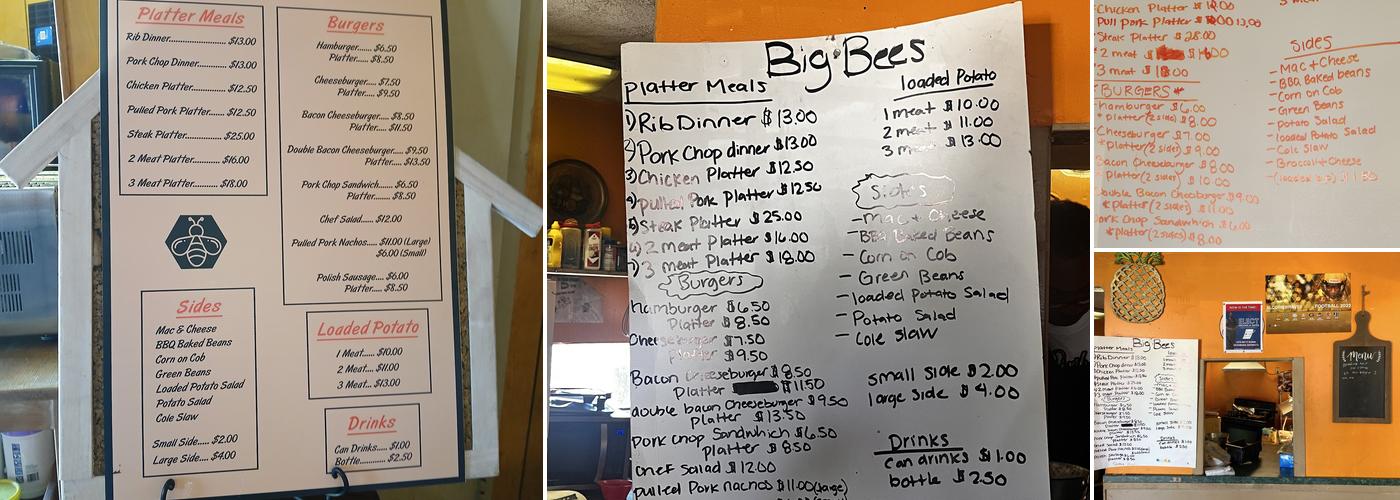 Platter Meals
Rib Dinner............................. $13.00
Pork Chop Dinner............... $13.00
Chicken Platter................... $12.50
Pulled Pork Platter............ $12.50
Steak Platter....................... $25.00
2 Meat Platter.................... $16.00
3 Meat Platter.................... $18.00
Sides
Mac & Cheese
BBQ Baked Beans
Corn on Cob
Green Beans
Loaded Potato Salad
Potato Salad
Cole Slaw
Small Side..... $2.00
Large Side.... $4.00
Burgers
Hamburger....... $6.50
Platter....... $8.50
Cheeseburger....... $7.50
Platter....... $9.50
Bacon Cheeseburger....... $8.50
Platter..... $11.50
Double Bacon Cheeseburger..... $9.50
Platter..... $13.50
Pork Chop Sandwich..... $6.50
Platter....... $8.50
Chef Salad..... $12.00
Pulled Pork Nachos..... $11.00 (Large)
$6.00 (Small)
Polish Sausage.... $6.00
Platter.... $8.50
Loaded Potato
1 Meat..... $10.00
2 Meat..... $11.00
3 Meat.... $13.00
Drinks
Can Drinks..... $1.00
Bottle........... $2.50
Big Bees
Platter Meals
1) Rib Dinner $13.00
2) Pork Chop dinner $13.00
3) Chicken Platter $12.50
4) Pulled Pork Platter $12.50
5) Steak Platter $25.00
6) 2 meat Platter $16.00
7) 3 meat Platter $18.00
Burgers
hamburger $6.50
Platter $8.50
Cheeseburger $7.50
platter $9.50
Bacon Cheeseburger $8.50
Platter $11.50
double bacon Cheeseburger $9.50
platter $13.50
Pork Chop Sandwhich $6.50
platter $8.50
Chef Salad $12.00
pulled Pork nachos $11.00 (large)
loaded Potato
1 meat $10.00
2 meat $11.00
3 meat $13.00
Sides
- Mac + Cheese
- BBQ Baked Beans
- Corn on Cob
- Green Beans
- loaded Potato Salad
- Potato Salad
- Cole Slaw
small side $2.00
large side $4.00
Drinks
Can drinks $1.00
bottle $2.50
Chicken Platter
Pull Pork Platter 13.00
Steak Platter $28.00
2 meat
3 meat
BURGERS *
hamburger $6.00
* platter (2 sides) $8.00
Cheeseburger $7.00
* platter (2 sides) $9.00
Bacon Cheeseburger $8.00
* platter (2 sides) $10.00
Double Bacon Cheeseburger $9.00
* platter (2 sides) $11.00
Pork Chop Sandwhich $6.00
* platter (2 sides) $8.00
Sides
- Mac + Cheese
- BBQ Baked beans
- Corn on Cob
- Green Beans
- potato Salad
- loaded Potato Salad
- Cole Slaw
- Broccoli + Cheese
Big Bees
Platter Meals
Menu
FOOTBALL 2022